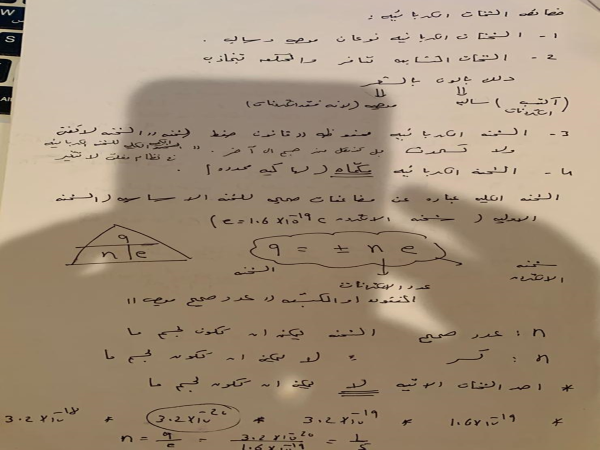 خصائص الشحنات الكهربائية :
1- الشحنات الكهربائية نوعان موجب وسالب .
2- الشحنات المتشابهة تتنافر والمختلفة تتجاذب
دلك بالون بالشعر
(اكتسب الكترونات) سالبة موجب (لانه فقد الكترونات)
3- الشحنة الكهربائية محفوظة "قانون حفظ الشحنة" الشحنة لا تفنى
ولا تستحدث بل تنتقل من جسم الى آخر .
في نظام معزل لا تتغير
4- الشحنة الكهربائية مكماه (لها كمية محدودة) .
الشحنة الكلية عباره عن مضاعفات صحيح للشحنة الاساسية (الشحنة
الاولية (شحنة الالكترون e = 1.6 x 10^-19 C)
q
n e
q = ± n e
الشحنة
شحنة الالكترون
عدد الالكترونات
المفقوده او المكتسبه "عدد صحيح موجب"
n : عدد صحيح الشحنة يمكن ان تكون لجسم ما
n : كسر " لا يمكن ان تكون لجسم ما
* احد الشحنات الاتية لا يمكن ان تكون لجسم ما
* 1.6x10^-19 * 3.2x10^-19 * 3.2x10^-20 * 3.2x10^-18
n = q/e = 3.2x10^-20 / 1.6x10^-19 = 1/5